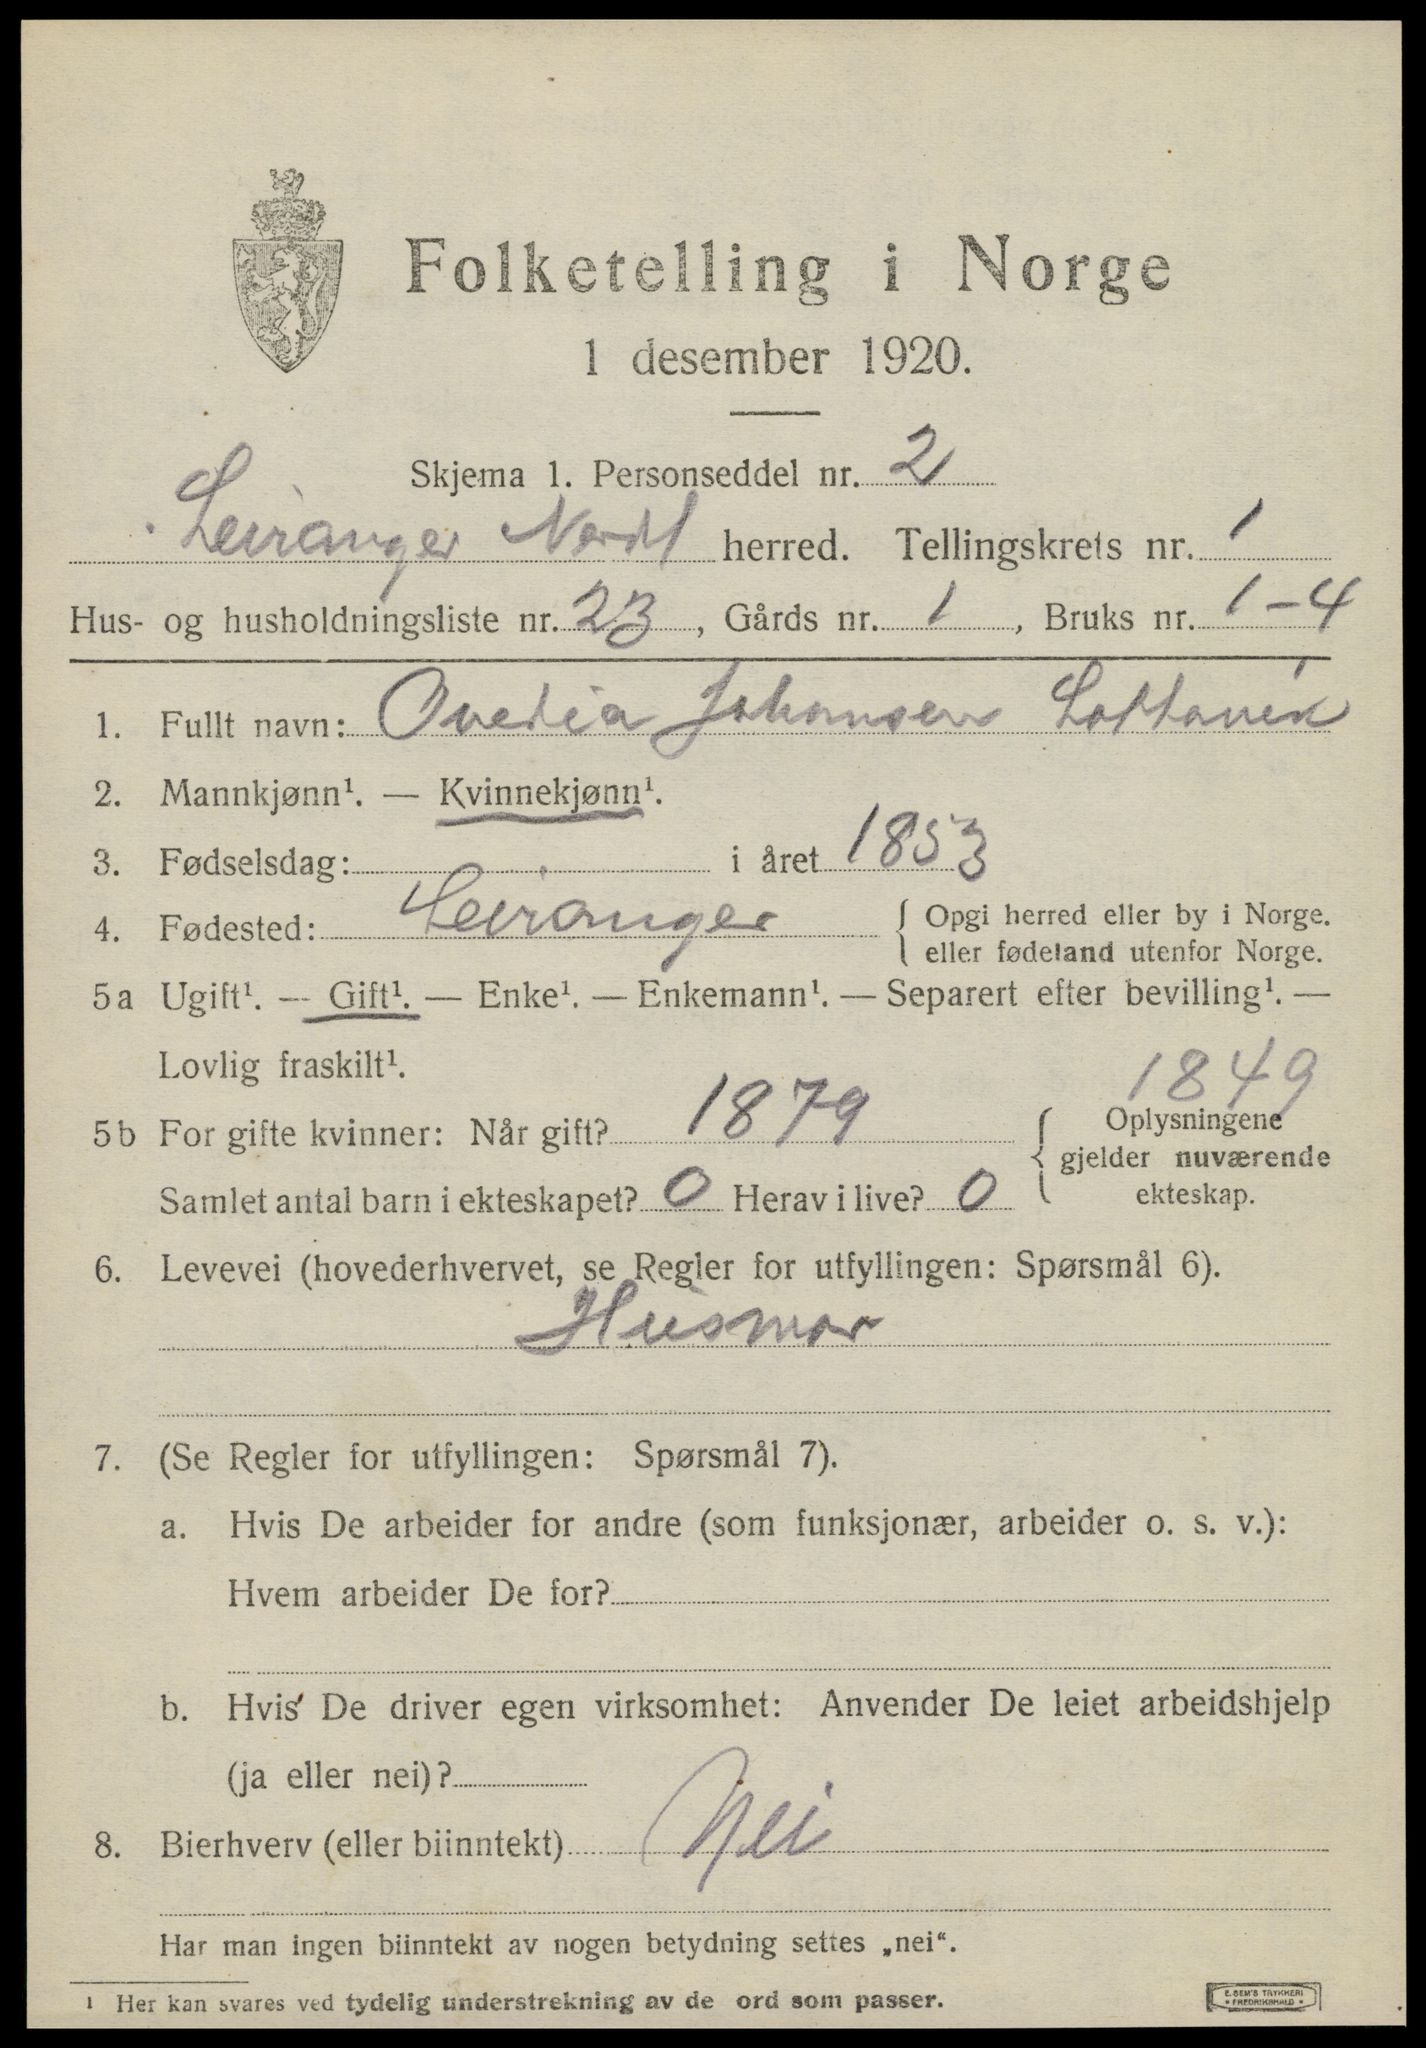 Folketelling i Norge
1 desember 1920.
Skjema 1. Personseddel nr. 2
Leiranger Nordl herred. Tellingskrets nr. 1
Hus- og husholdningsliste nr. 23, Gårds nr. 1, Bruks nr. 1-4
1. Fullt navn: Ovedia Johansen
2. Mannkjønn¹. — Kvinnekjønn¹.
3. Fødselsdag: i året 1853
4. Fødested: Leiranger { Opgi herred eller by i Norge.
eller fødeland utenfor Norge.
5a Ugift¹. — Gift¹. — Enke¹. — Enkemann¹. — Separert efter bevilling¹. —
Lovlig fraskilt¹.
1849
5b For gifte kvinner: Når gift? 1879
Samlet antal barn i ekteskapet? 0 Herav i live? 0
{ Oplysningene
gjelder nuværende
ekteskap.
6. Levevei (hovederhvervet, se Regler for utfyllingen: Spørsmål 6).
Husmor
7. (Se Regler for utfyllingen: Spørsmål 7).
a. Hvis De arbeider for andre (som funksjonær, arbeider o. s. v.):
Hvem arbeider De for?
b. Hvis De driver egen virksomhet: Anvender De leiet arbeidshjelp
(ja eller nei)?
8. Bierhverv (eller biinntekt) Nei
Har man ingen biinntekt av nogen betydning settes „nei“.
1 Her kan svares ved tydelig understrekning av de ord som passer.
E. SEM'S TRYKKERI
FREDRIKSHALD